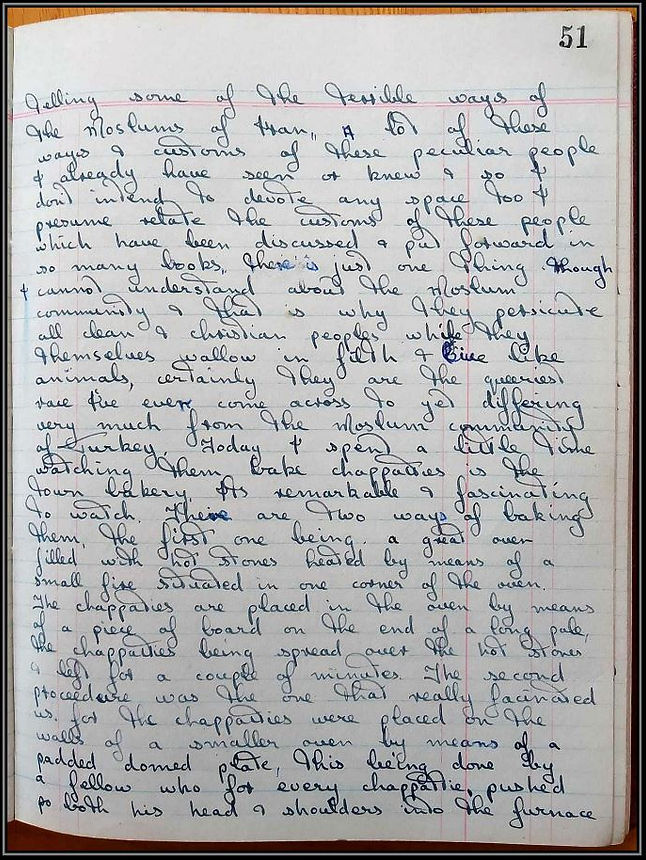 51
telling some of the terrible ways of
the Moslums of Iran,, A lot of these
ways & customs of these peculiar people
I already have seen or knew & so I
dont intend to devote any space too I
presume relate the customs of these people
which have been discussed & put forward in
so many books,, there is just one thing though
I cannot understand about the Moslum
community & that is why they persicute
all clean & christian peoples while they
themselves wallow in filth & live like
animals, certainly they are the queeriest
race I've ever come across to yet differing
very much from the Moslum community
of Turkey. Today I spent a little time
watching them bake chappatties is the
town bakery. Its remarkable & fascinating
to watch. There are two ways of baking
them, the first one being. a great oven
filled with hot stones heated by means of a
small fire situated in one corner of the oven.
The chappaties are placed in the oven by means
of a piece of board on the end of a long pole,
the chappatties being spread over the hot stones
& left for a couple of minutes. The second
proceedure was the one that really facinated
us. for the chappatties were placed on the
walls of a smaller oven by means of a
padded domed plate, this being done by
a fellow who for every chappattie, pushed
so both his head & shoulders into the furnace